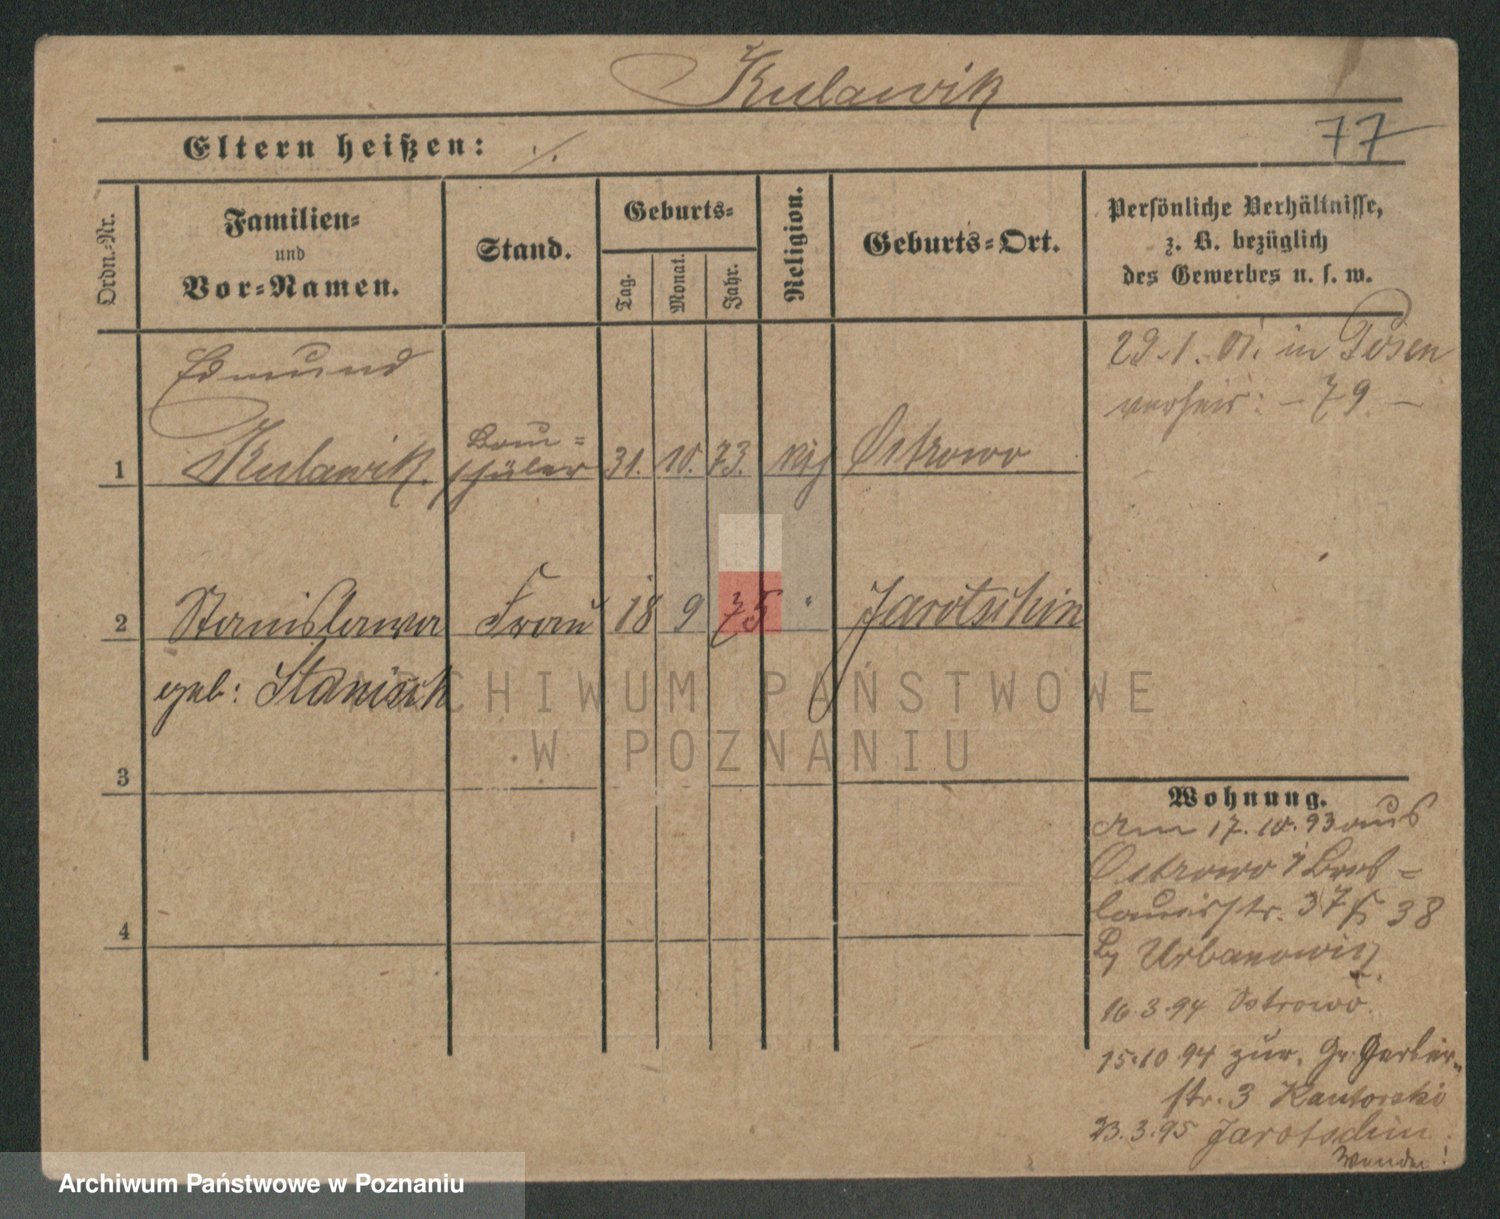 Kulawik
Eltern heißen: ./.
77
Ordn.-Nr.
Familien-
und
Vor-Namen.
Stand.
Geburts-
Tag.
Monat.
Jahr.
Religion.
Geburts-Ort.
Persönliche Verhältnisse,
z. B. bezüglich
des Gewerbes u. s. w.
Edmund
1 Kulawik. Bau=
schüler 31. 10. 73. Ostrowo
29.1.01. in Posen
verheir: - 79. -
2 Stanislawa Frau 18 9 75 " Jarotschin
geb:
3
4
Wohnung.
Am 17.10.93 aus
Ostrowo Bres=
lauerstr. 37/38
Urbanowicz.
16.3.94 Ostrowo.
15.10.94 zur. Gr. Gerber=
str. 3 Kantorski
23.3.95 Jarotschin
Wenden!
ARCHIWUM PAŃSTWOWE
W POZNANIU
Archiwum Państwowe w Poznaniu